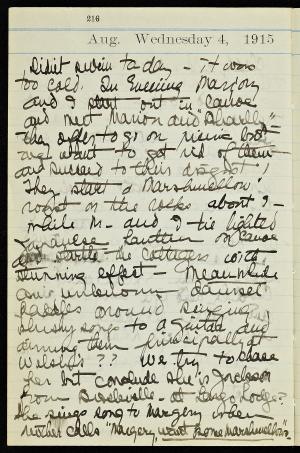 216
Aug. Wednesday 4, 1915
Didn't swim today - it was
too cold. In Evening Marion
and I start out in canoe
and met Marion and Charlie
they offer to go on picnic but
we want to get rid of them
and succeed to their disgust!
They start a Marshmellow
roast on the rocks about 9 -
while M - and I tie lighted
Japanese lantern on canoe
and startle the cottagers with
stunning effect - Meanwhile
an unknown damsel
paddles around singing
slushy songs to a guitar and
principally at
Welsh's?? We try to chase
her but conclude she is Jackson
from
She sings song to Margery when
mother calls "Margery, want some Marshmellows"